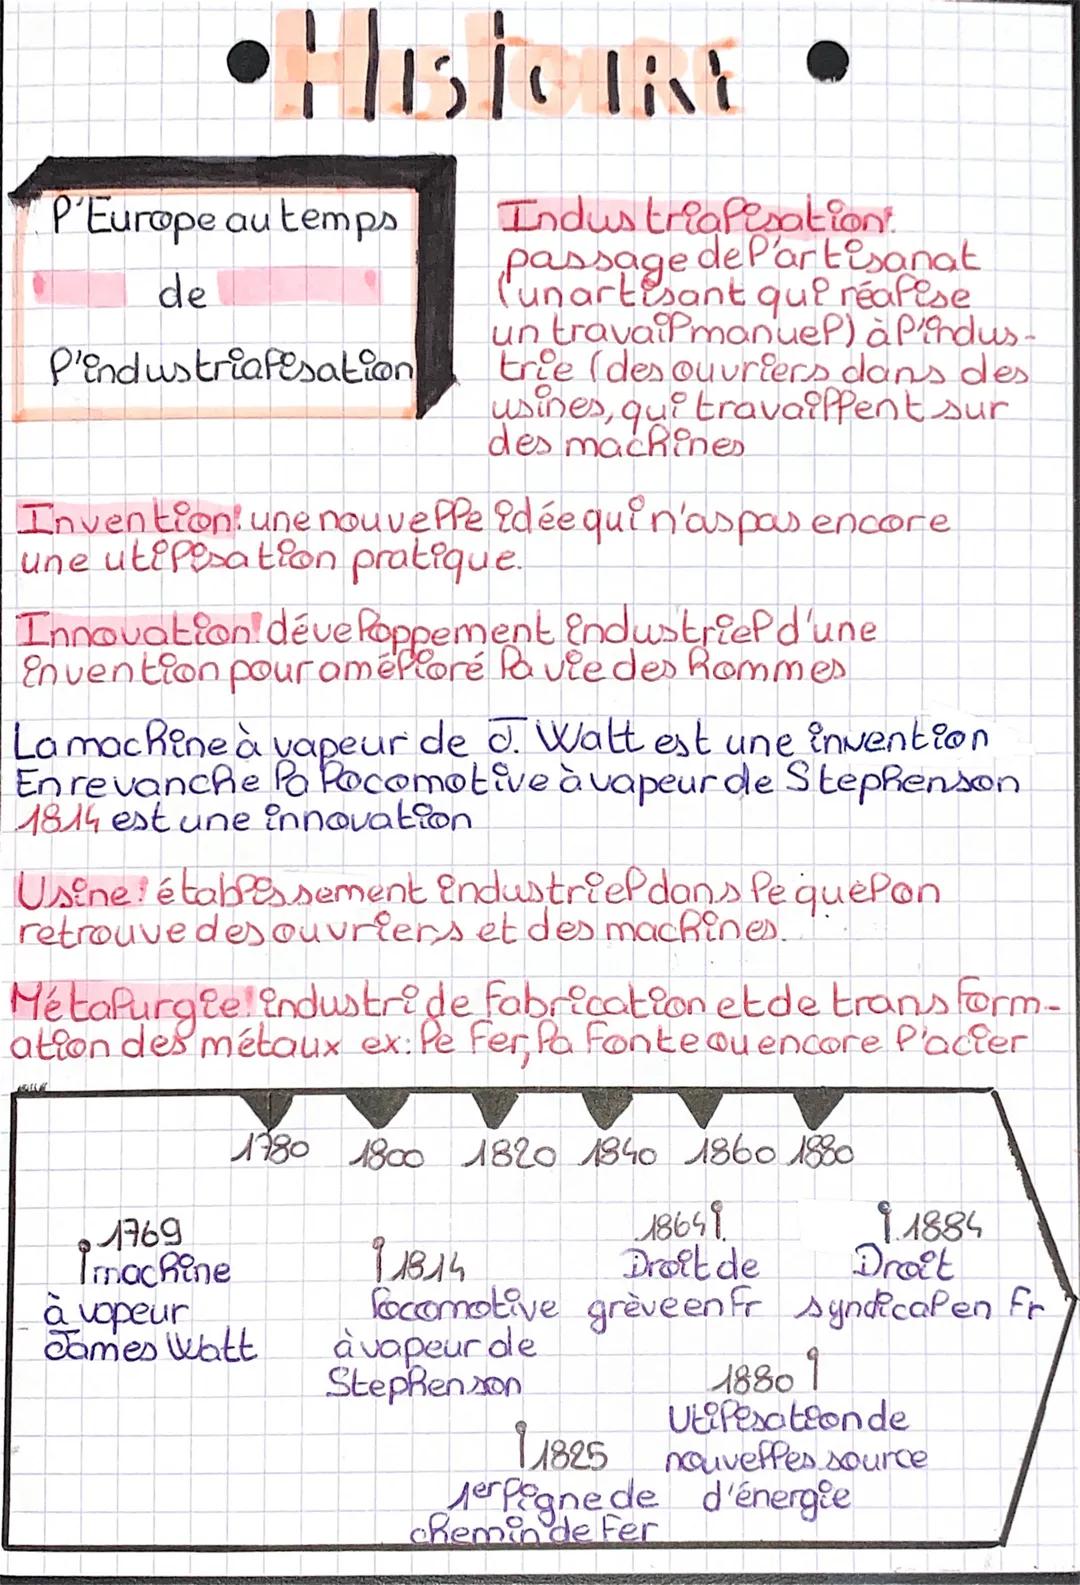 HISTOIRE
l'Europe au temps
de
l'industrialisation
Industrialisation:
passage de l'artisanat
(un artisant qui réalise
un travail manuel) à l'indus-
trie (des ouvriers dans des
usines, qui travaillent sur
des machines
Invention: une nouvelle idée qui n'as pas encore
une utilisation pratique.
Innovation: développement industriel d'une
invention pour amélioré la vie des hommes
La machine à vapeur de J. Watt est une invention
En revanche la locomotive à vapeur de Stephenson
1814 est une innovation
Usine: établissement industriel dans le quel on
retrouve des ouvriers et des machines.
Métalurgie: industri de fabrication et de transform-
ation des métaux ex: le fer, la fonte ou encore l'acier
1780 1800 1820 1840 1860 1880
1769
machine
à vapeur
James Watt
1814
locomotive
à vapeur de
Stephenson
1825
1er ligne de
chemin de fer
1864
Droit de
grève en fr
1880
Utilisation de
nouvelles source
d'énergie
1884
Droit
syndical en fr